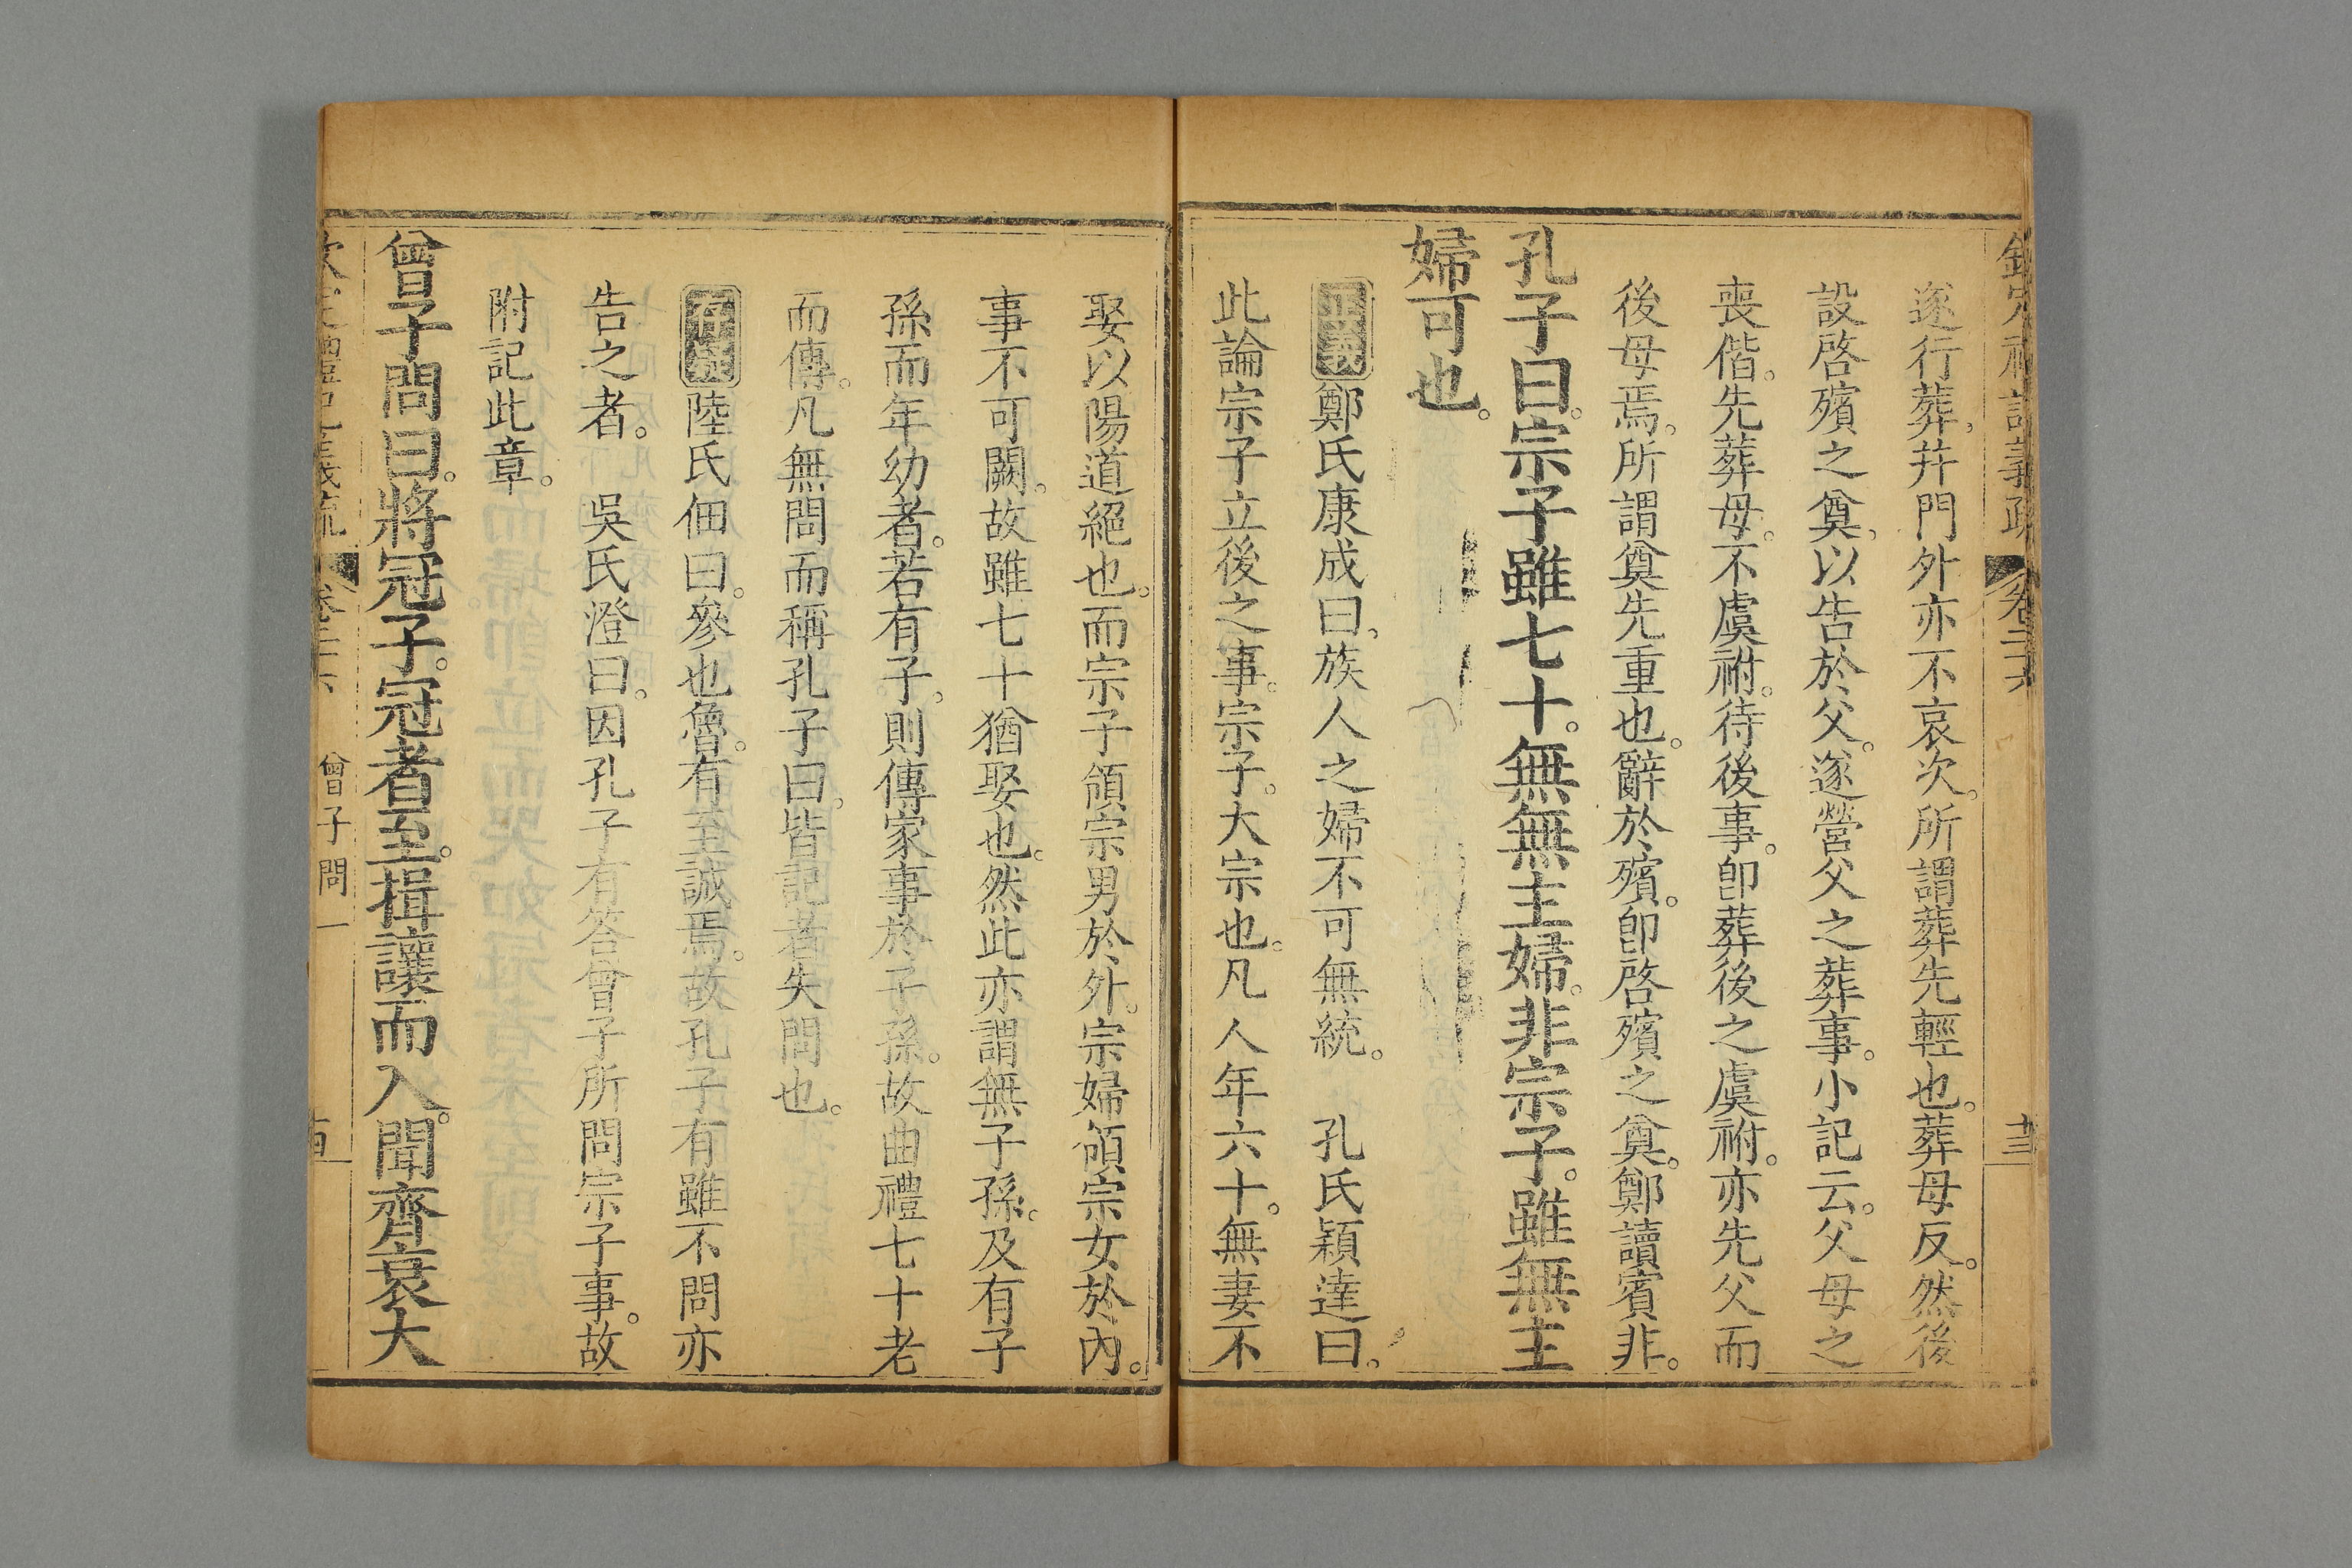 欽定禮記義疏 卷二十六 十三
遂行葬，并門外亦不哀次。所謂葬先輕也。葬母反。然後
設啓殯之奠，以告於父。遂營父之葬事。小記云。父母之
喪偕。先葬母。不虞祔。待後事。卽葬後之虞祔。亦先父而
後母焉。所謂奠先重也。辭於殯。卽啓殯之奠。鄭讀賓非。
孔子曰。宗子雖七十。無無主婦。非宗子。雖無主
婦可也。
正義鄭氏康成曰，族人之婦不可無統。　孔氏穎達曰。
此論宗子立後之事。宗子。大宗也。凡人年六十。無妻不
娶以陽道絕也。而宗子領宗男於外。宗婦領宗女於內。
事不可闕。故雖七十猶娶也。然此亦謂無子孫。及有子
孫而年幼者。若有子，則傳家事於子孫。故曲禮七十老
而傳。凡無問而稱孔子曰，皆記者失問也。
存疑陸氏佃曰。參也魯。有至誠焉。故孔子有雖不問亦
告之者。　吳氏澄曰。因孔子有答曾子所問宗子事。故
附記此章。
曾子問曰。將冠子。冠者至。揖讓而入。聞齊衰大
卷二十六 曾子問一